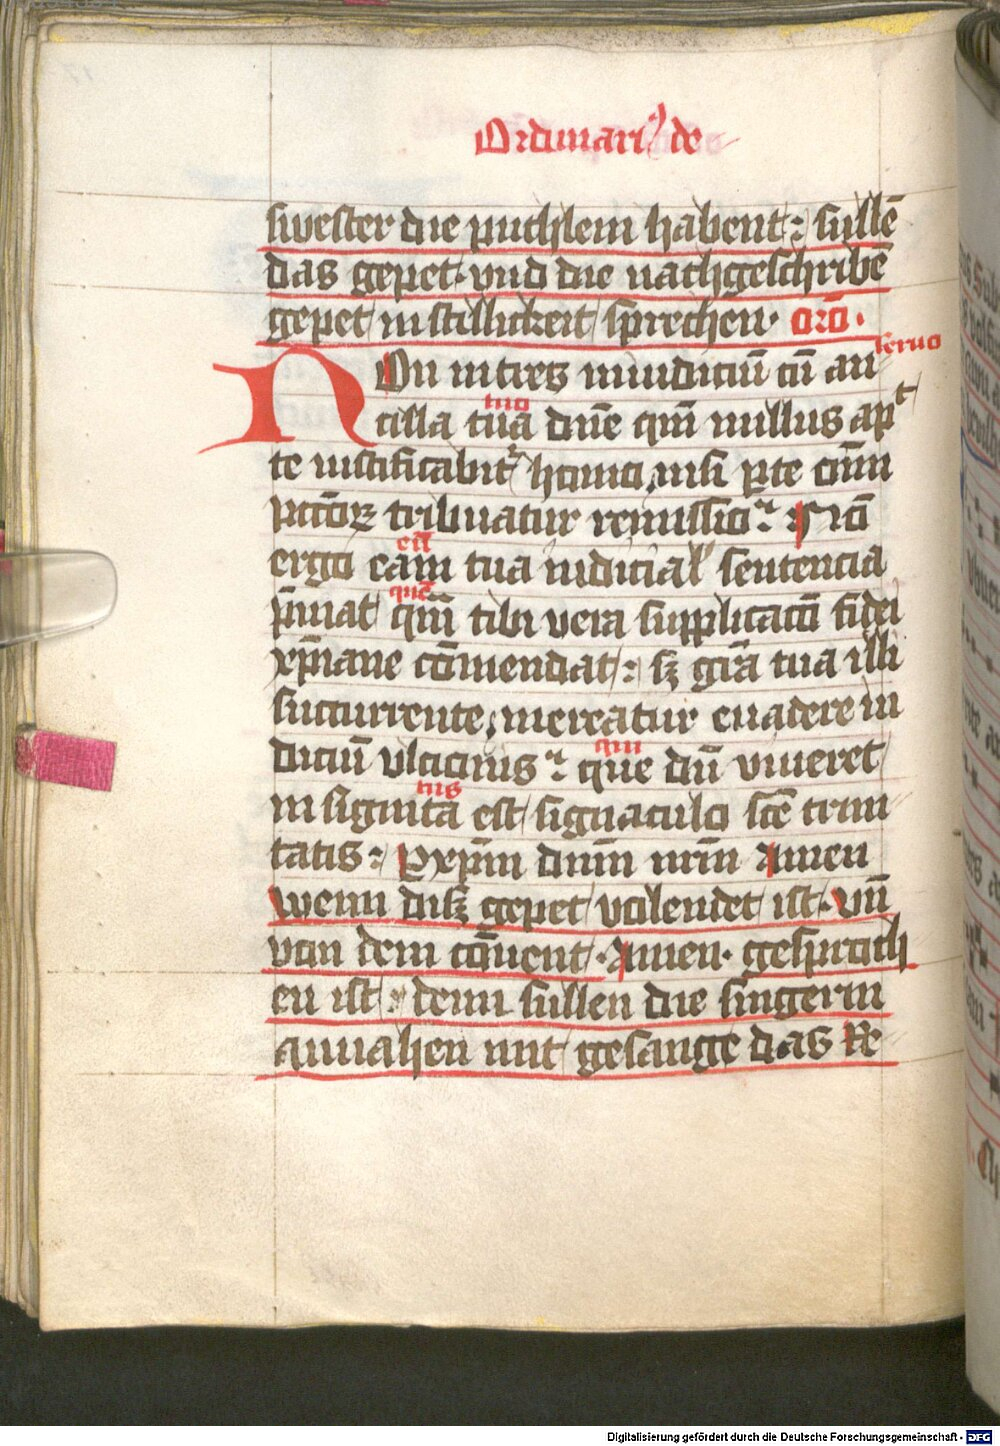 Ordinari9 de
swester die puchlein habent : sullē
das gepet · vnd die nachgeschribē
gepet in stillickeit sprechen · oro̅ ·
seruo
NOn intres in iudiciū cū an
tuo
cilla tua dn̄e qm̄ nullus apᵗ
te iustificabit͛ homo, nisi ꝑte om̄m
pctōꝝ tribuatur remissio : Nō
eū
ergo eam tua iudicial᾽ sentencia
quē
p̄mat qm̄ tibi vera supplicacō fidei
xp̄iane cōmendat : sꝫ gr̄a tua illi
succurrente, mereatur euadere iu
diciū vlcionis : que dū viueret
qui
tus
insignita est signaculo scē trini
tatis : P xp̄m dn̄m nr̄m Amen
Wenn disz gepet volendet ist · vn̄
von dem cōuent · Amen · gesproch
en ist : denn sullen die singerin
anuahen mit gesange das Re
Digitalisierung gefördert durch die Deutsche Forschungsgemeinschaft - DFG